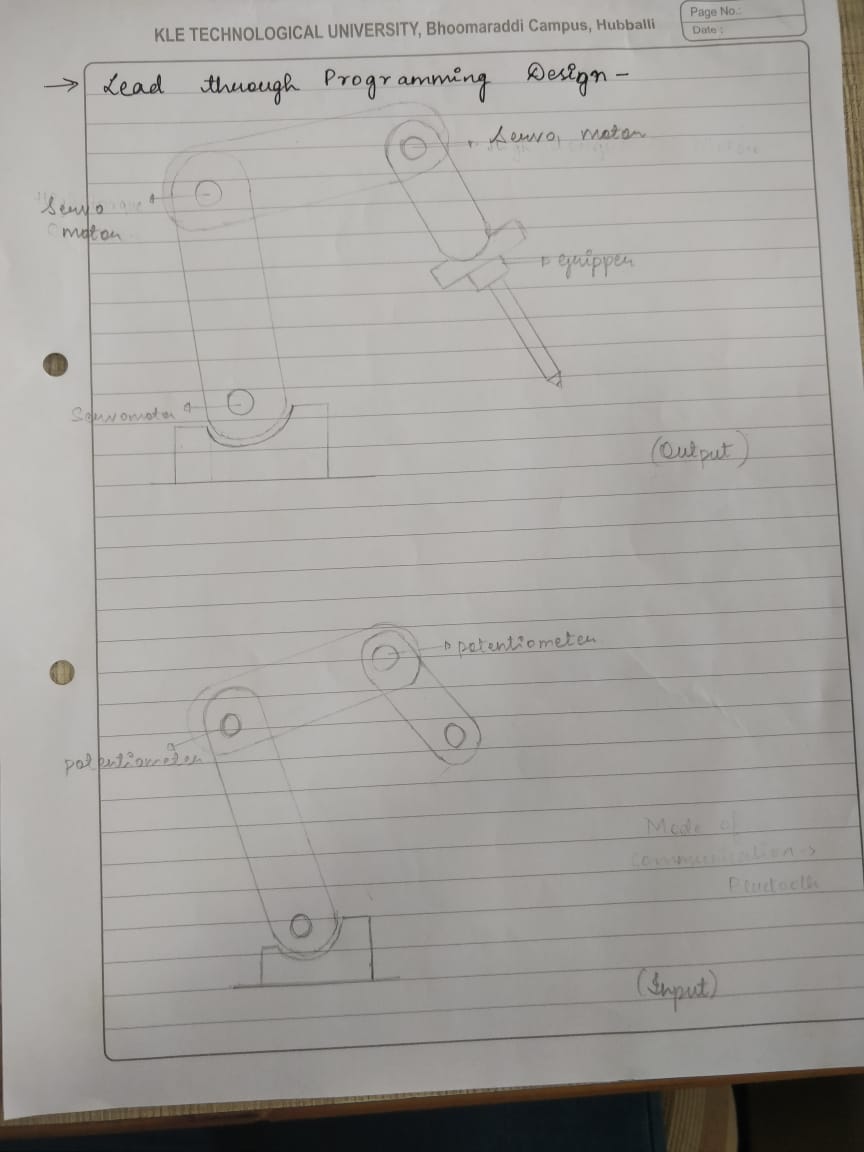 KLE TECHNOLOGICAL UNIVERSITY, Bhoomaraddi Campus, Hubballi
Page No.:
Date :
→ Lead through Programming Design -
Servo motor
Servo
motor
gripper
Servomotor
(Output)
potentiometer
potentiometer
Mode of
Communication →
Bluetooth
(Input)